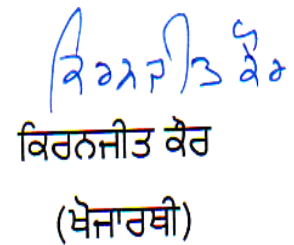 ਕਿਰਨਜੀਤ ਕੌਰ
ਕਿਰਨਜੀਤ ਕੌਰ
(ਖੋਜਾਰਥੀ)